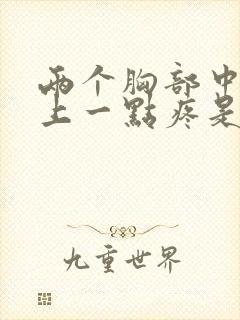 两个胸部中
上一點疼是
九重世界